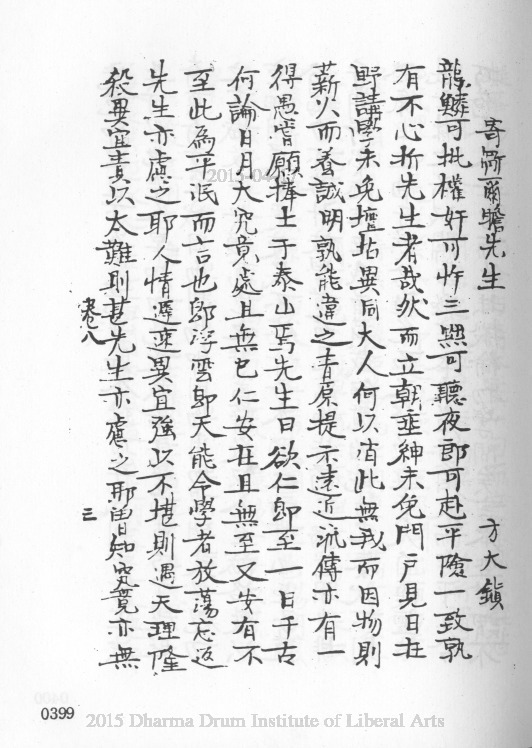 寄鄒爾瞻先生
方大鎮
龍鱗可批權奸可忤三黜可聽夜郎可赴平險一致孰
有不心折先生者哉然而立朝垂紳未免門戶見日在
野講學未免壇坫異同大人何以消此無我而因物則
薪火而養誠明孰能違之青原提示遠近流傳亦有一
得愚嘗願捧土于泰山焉先生曰欲仁即至一日千古
何論日月大究竟處且無已仁安在且無至又安有不
至此為平泯而言也即浮雲即天能令學者放蕩忘返
先生亦慮之耶人情遲速異宜強以不堪則遇天理隆
殺異宜責以太難則甚先生亦慮之耶曾知究竟亦無
卷八
三
0399
2015 Dharma Drum Institute of Liberal Arts